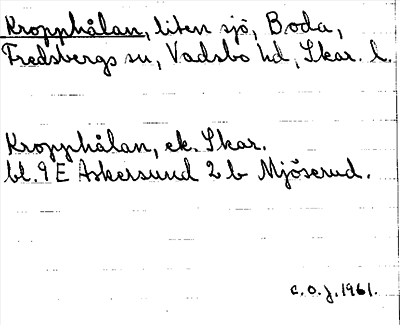 Kropphålan, liten sjö, Boda,
Fredsbergs sn, Vadsbo hd, Skar. l.
Kropphålan, ek. Skar.
bl. 9 E Askersund 2 b Mjöserud.
C.O.J. 1961.